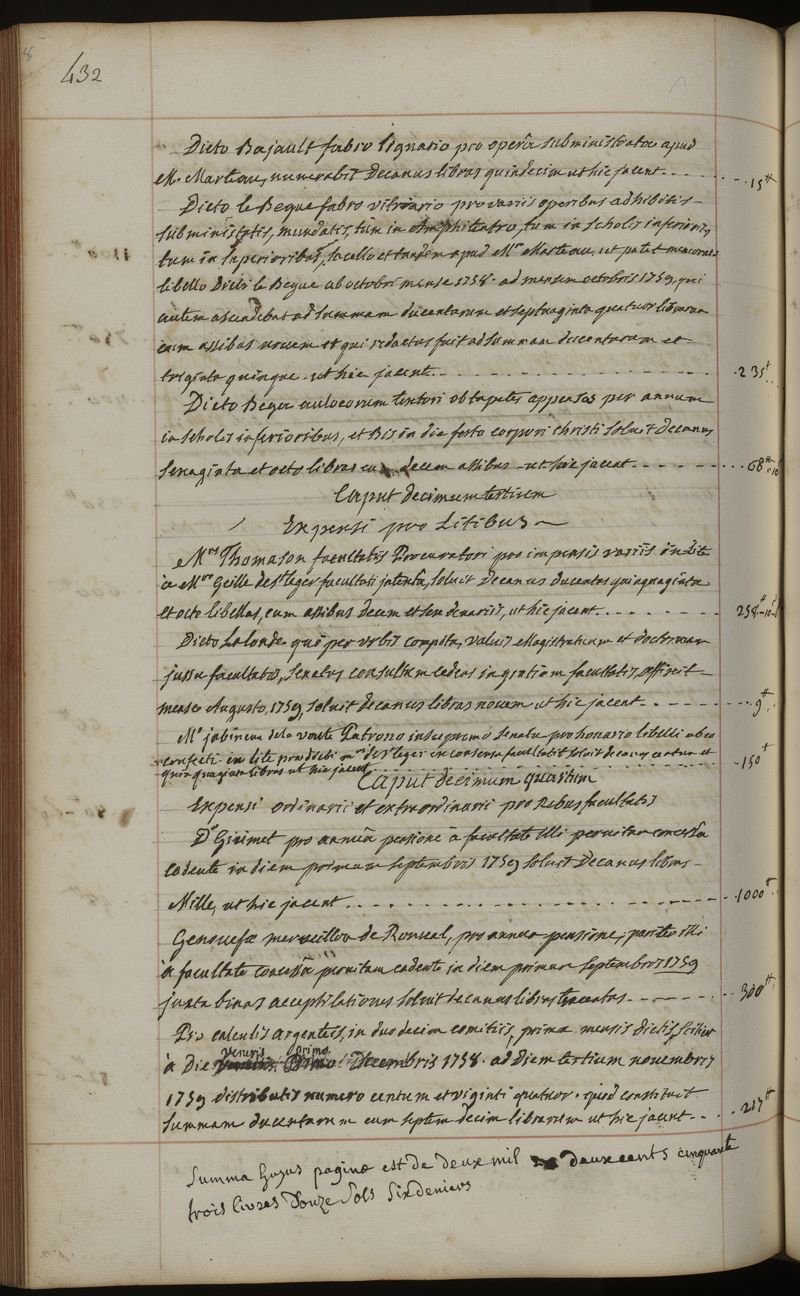 432
Dicto Bajault fabro lignario pro operâ subministratâ apud
M. Marteau, numerabit Decanus libras quindecim ut hic jacent. 15tt
Dicto le Begue fabro vitriario pro variis operibus adhibitis
subministratis, mundatis, tùm in Amphiteatro, tum in scholis inferioribus
tum in superioribus, sacello et tandem apud Mm Marteau, ut patet
libello Dicti le Begue ab octobri mense 1758. ad mensem octobris 1759, qui
autem ascendebat ad summam ducentarum et septuaginta quatuor librarum
cum assibus novem et qui redactus fuit ad summam ducentarum et
triginta quinque. ut hic jacent. 235tt
Dicto Beger aulocorum textori ob tapetes appensos per annum
in scholis inferioribus, et Bis in die festo corporis christi soluit Decanus
sexaginta et octo libras cum decem assibus ut hic jacent. 68tt 10
Caput decimum tertium
Expensi pro Litibus
Mro Thomason facultatis Procuratori pro impensis variis in Lite
à Mro Geille de St leger facultati intentâ, soluit Decanus ducentas quinquaginta
et octo libellas, cum assibus decem et sex denariis, ut hic jacent. 258tt 10 6
Dicto Lalonde
jussu facultatis, senatus consultum
mense Augusto, 1759, soluit decanus libras novem ut hic jacent. 9tt
de la voute Patrono in supremo Senatu pro honorario libelli ab eo
confecti in lite prædicti mri de St leger ex consensu facultatis soluit decanus centum et
quinquaginta libras ut hic jacent 150tt
Caput decimum quartum
Expensi ordinarii et extraordinarii pro Rebus facultatis
Do Girimet pro annuâ pensione à facultate illi concessâ
cadente in diem primum septembris 1759 soluit Decanus libras
Mille, ut hic jacent. 1000tt
Genovefæ de Ronceal, pro annua pensione, pariter illi
à facultate concessâ cadente in diem primum septembris 1759
juxta binas acceptilationes soluit decanus libras trecentas 300tt
Pro calculis argenteis, in duodecim comitiis, prima mensis dictis, scilicet
à Die veneris primo Decembris 1758. ad diem tertium novembris
1759 distributis numero centum et viginti quatuor. quod constituit
summam ducentarum cum septem decim librarum ut hic jacent. 217tt
Summa hujus paginæ est de deux mil deux cents cinquante
trois livres Douze Sols Six deniers